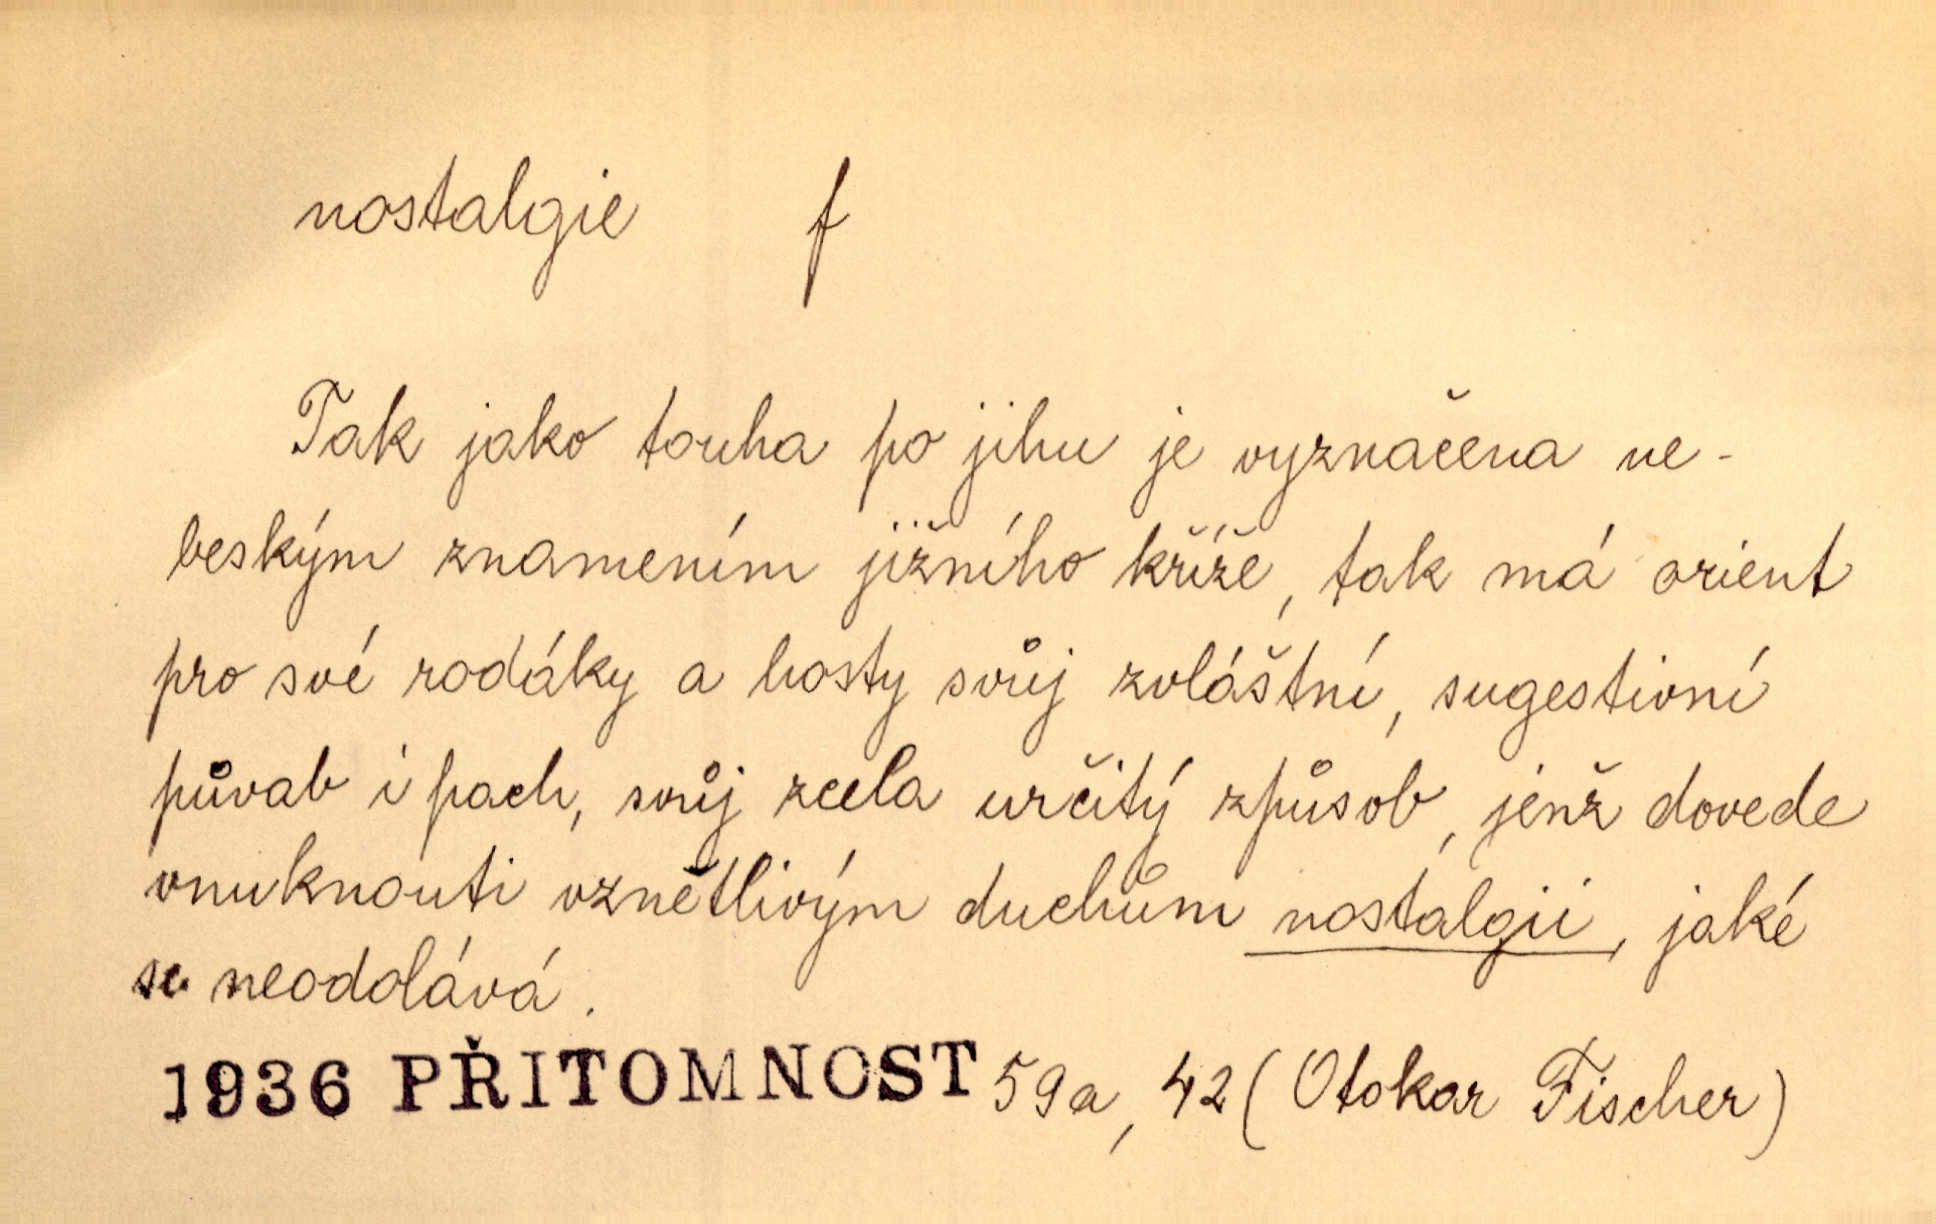 nostalgie f
Tak jako touha po jihu je vyznačena ne-
beským znamením jižního kříže, tak má orient
pro své rodáky a hosty svůj zvláštní, sugestivní
půvab i pach, svůj zcela určitý způsob, jenž dovede
vnuknouti vznětlivým duchům nostalgii, jaké
se neodolává.
1936 PŘITOMNOST 59a, 42 (Otokar Fischer)